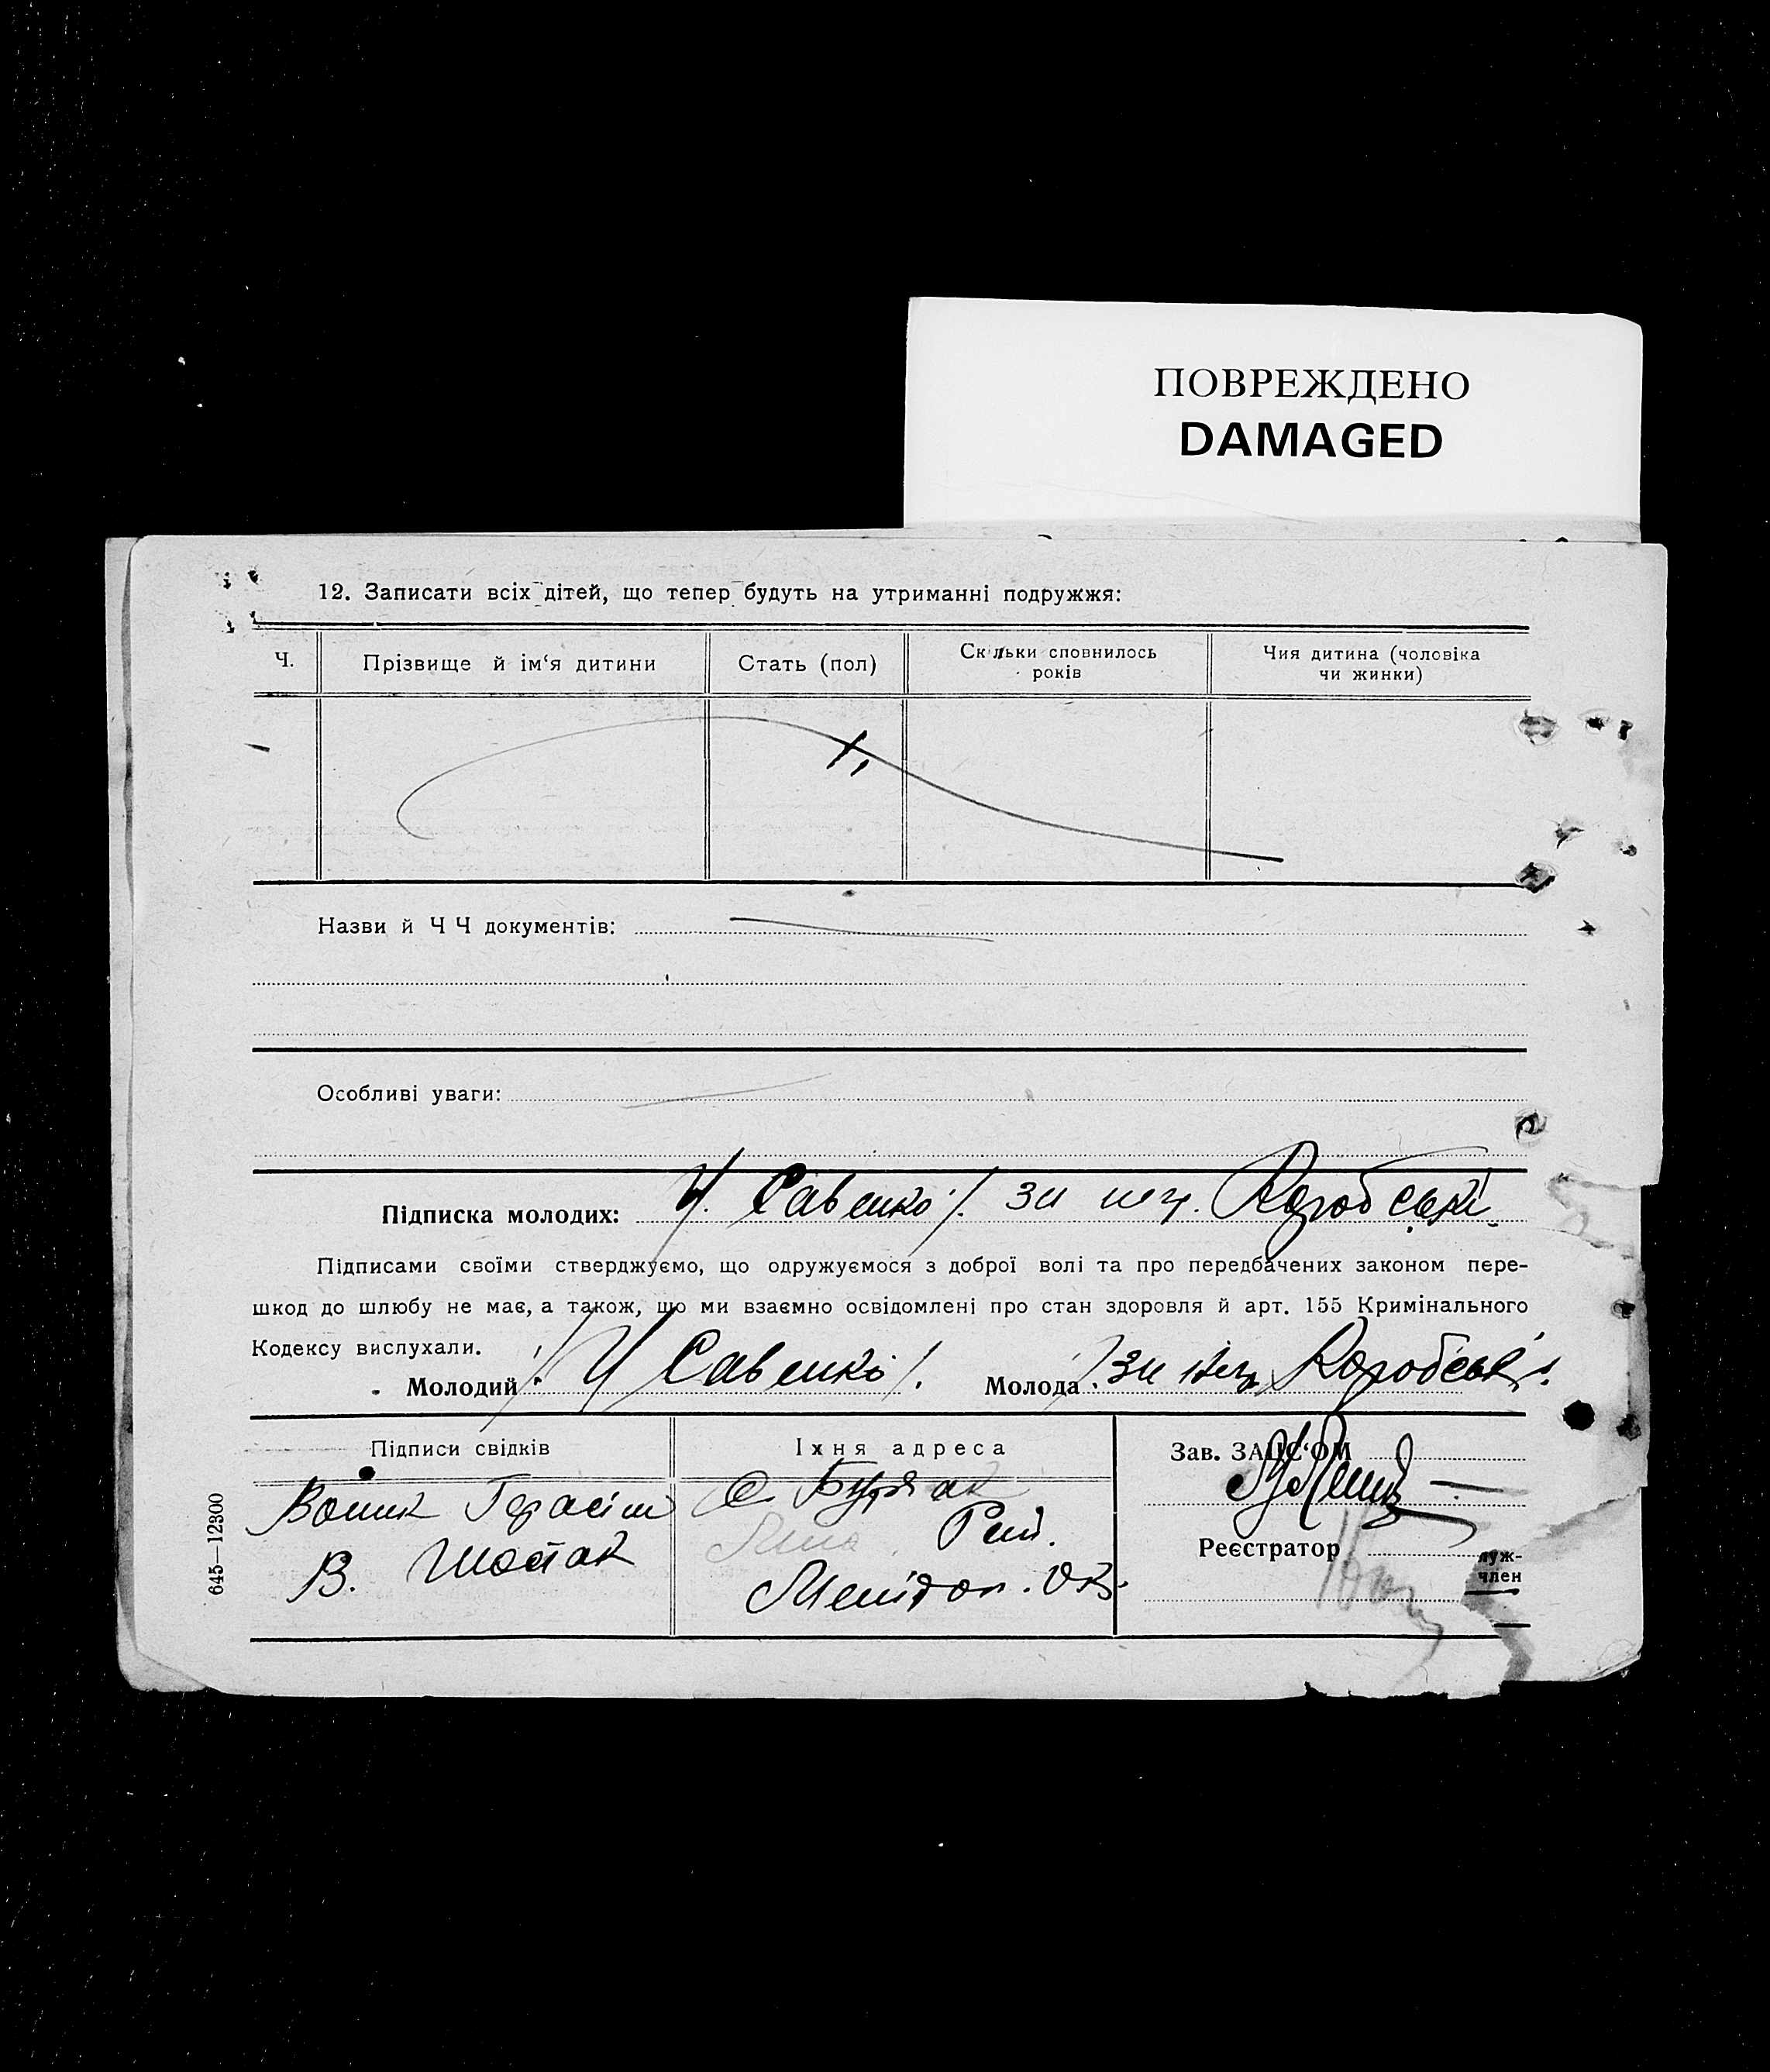 ПОВРЕЖДЕНО
DAMAGED
12. Записати всіх дітей, що тепер будуть на утриманні подружжя:
Ч.
Прізвище й ім‘я дитини
Стать (пол)
Скільки сповнилось
років
Чия дитина (чоловіка
чи жинки)
Назви й Ч Ч документів:
Особливі уваги:
Підписка молодих: Савенко за
Підписами своїми стверджуємо, що одружуємося з доброї волі та про передбачених законом пере-
шкод до шлюбу не має, а також, що ми взаємно освідомлені про стан здоровля й арт. 155 Кримінального
Кодексу вислухали.
Молодий Савенко Молода за
Підписи свідків
Їхня адреса
Зав. ЗАЦС‘ОМ
Герасім
В. Шостак
Рай.
Реєстратор
луж-
член
645—12300